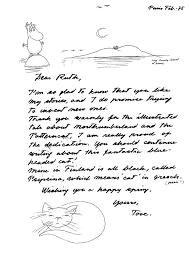 Paris Feb.-75
Dear Ruth,
I'm so glad to know that you like
my stories, and I do promise trying
to invent new ones.
Thank you warmly for the illustrated
tale about Northumberland and the
I am really proud of
the dedication. You should continue
writing about this fantastic blue-
headed cat!
Mine in Finland is all black, called
Psipsina, which means "cat" in greek.
Wishing you a happy spring.
Yours,
Tove.